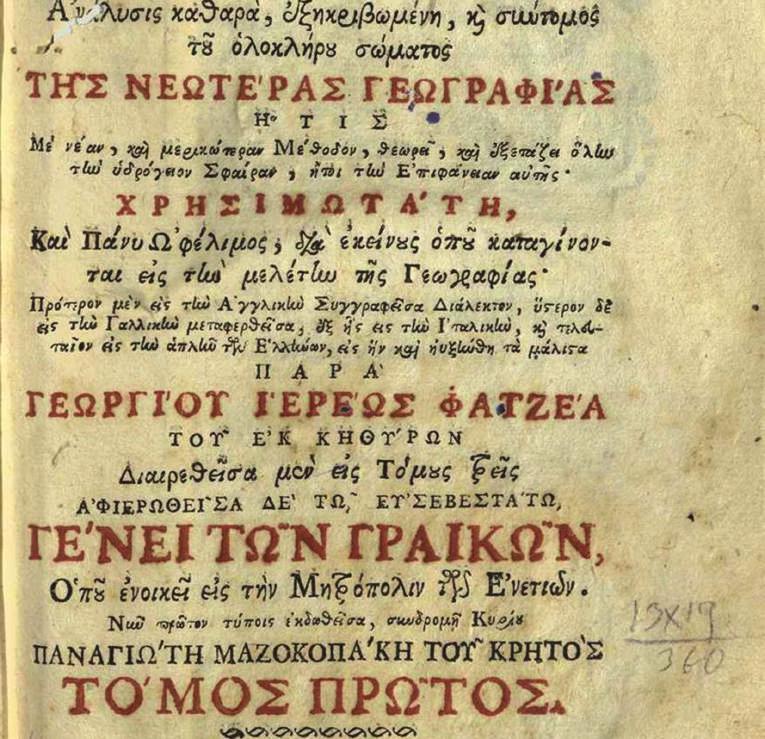 Ἀνάλυσις καθαρὰ, ἐξηκριβωμένη, κỳ σύντομος
τοῦ ὁλοκλήρου σώματος
ΤΗ͂Σ ΝΕΩΤΕ´ΡΑΣ ΓΕΩΓΡΑΦΙ´ΑΣ
Ἥ Τ Ι Σ
Μὲ νέαν, καὶ μερικώτεραν Μέθοδον, θεωρεῖ, καὶ ἐξετάζει ὅλην
τὴν ὑδρόγειον Σφαῖραν, ἤτοι τὴν Ἐπιφάνειαν αὐτῆς·
ΧΡΗΣΙΜΩΤΑ´ΤΗ,
Καὶ Πάνυ Ὠφέλιμος, διὰ ἐκείνους ὁποῦ καταγίνον-
ται εἰς τὴν μελέτην τῆς Γεωγραφίας·
Πρότερον μὲν εἰς τὴν Ἀγγλικὴν Συγγραφεῖσα Διάλεκτον, ὕστερον δὲ
εἰς τὴν Γαλλικὴν μεταφερθεῖσα, ἐξ ἧς εἰς τὴν Ἰταλικὴν, κỳ τελευ-
ταῖον εἰς τὴν ἁπλῆν τῶν Ἑλλήνων, εἰς ἣν καὶ ηὐξύνθη τὰ μάλιστα
Π Α Ρ Α`
ΓΕΩΡΓΙ´ΟΥ ἹΕΡΕ´ΩΣ ΦΑΤΖΕ´Α
ΤΟΥ͂ ἘΚ ΚΗΘΥ´ΡΩΝ
Διαιρεθεῖσα μὲν εἰς Τόμους τρεῖς
ἈΦΙΕΡΩΘΕΙ͂ΣΑ ΔΕ` ΤΩ͂, ΕΥ᾿ΣΕΒΕΣΤΑ´ΤΩ,
ΓΕ´ΝΕΙ ΤΩ͂Ν ΓΡΑΙΚΩ͂Ν,
Ὁποῦ ἐνοικεῖ εἰς τὴν Μητρόπολιν τῶν Ἐνετιῶν.
Νῦν πρῶτον τύποις ἐκδοθεῖσα, συνδρομῇ Κυρίου
ΠΑΝΑΓΙΩ´ΤΗ ΜΑΖΟΚΟΠΑ´ΚΗ ΤΟΥ͂ ΚΡΗΤΟ`Σ
ΤΟ´ΜΟΣ ΠΡΩ͂ΤΟΣ.
13X17
360